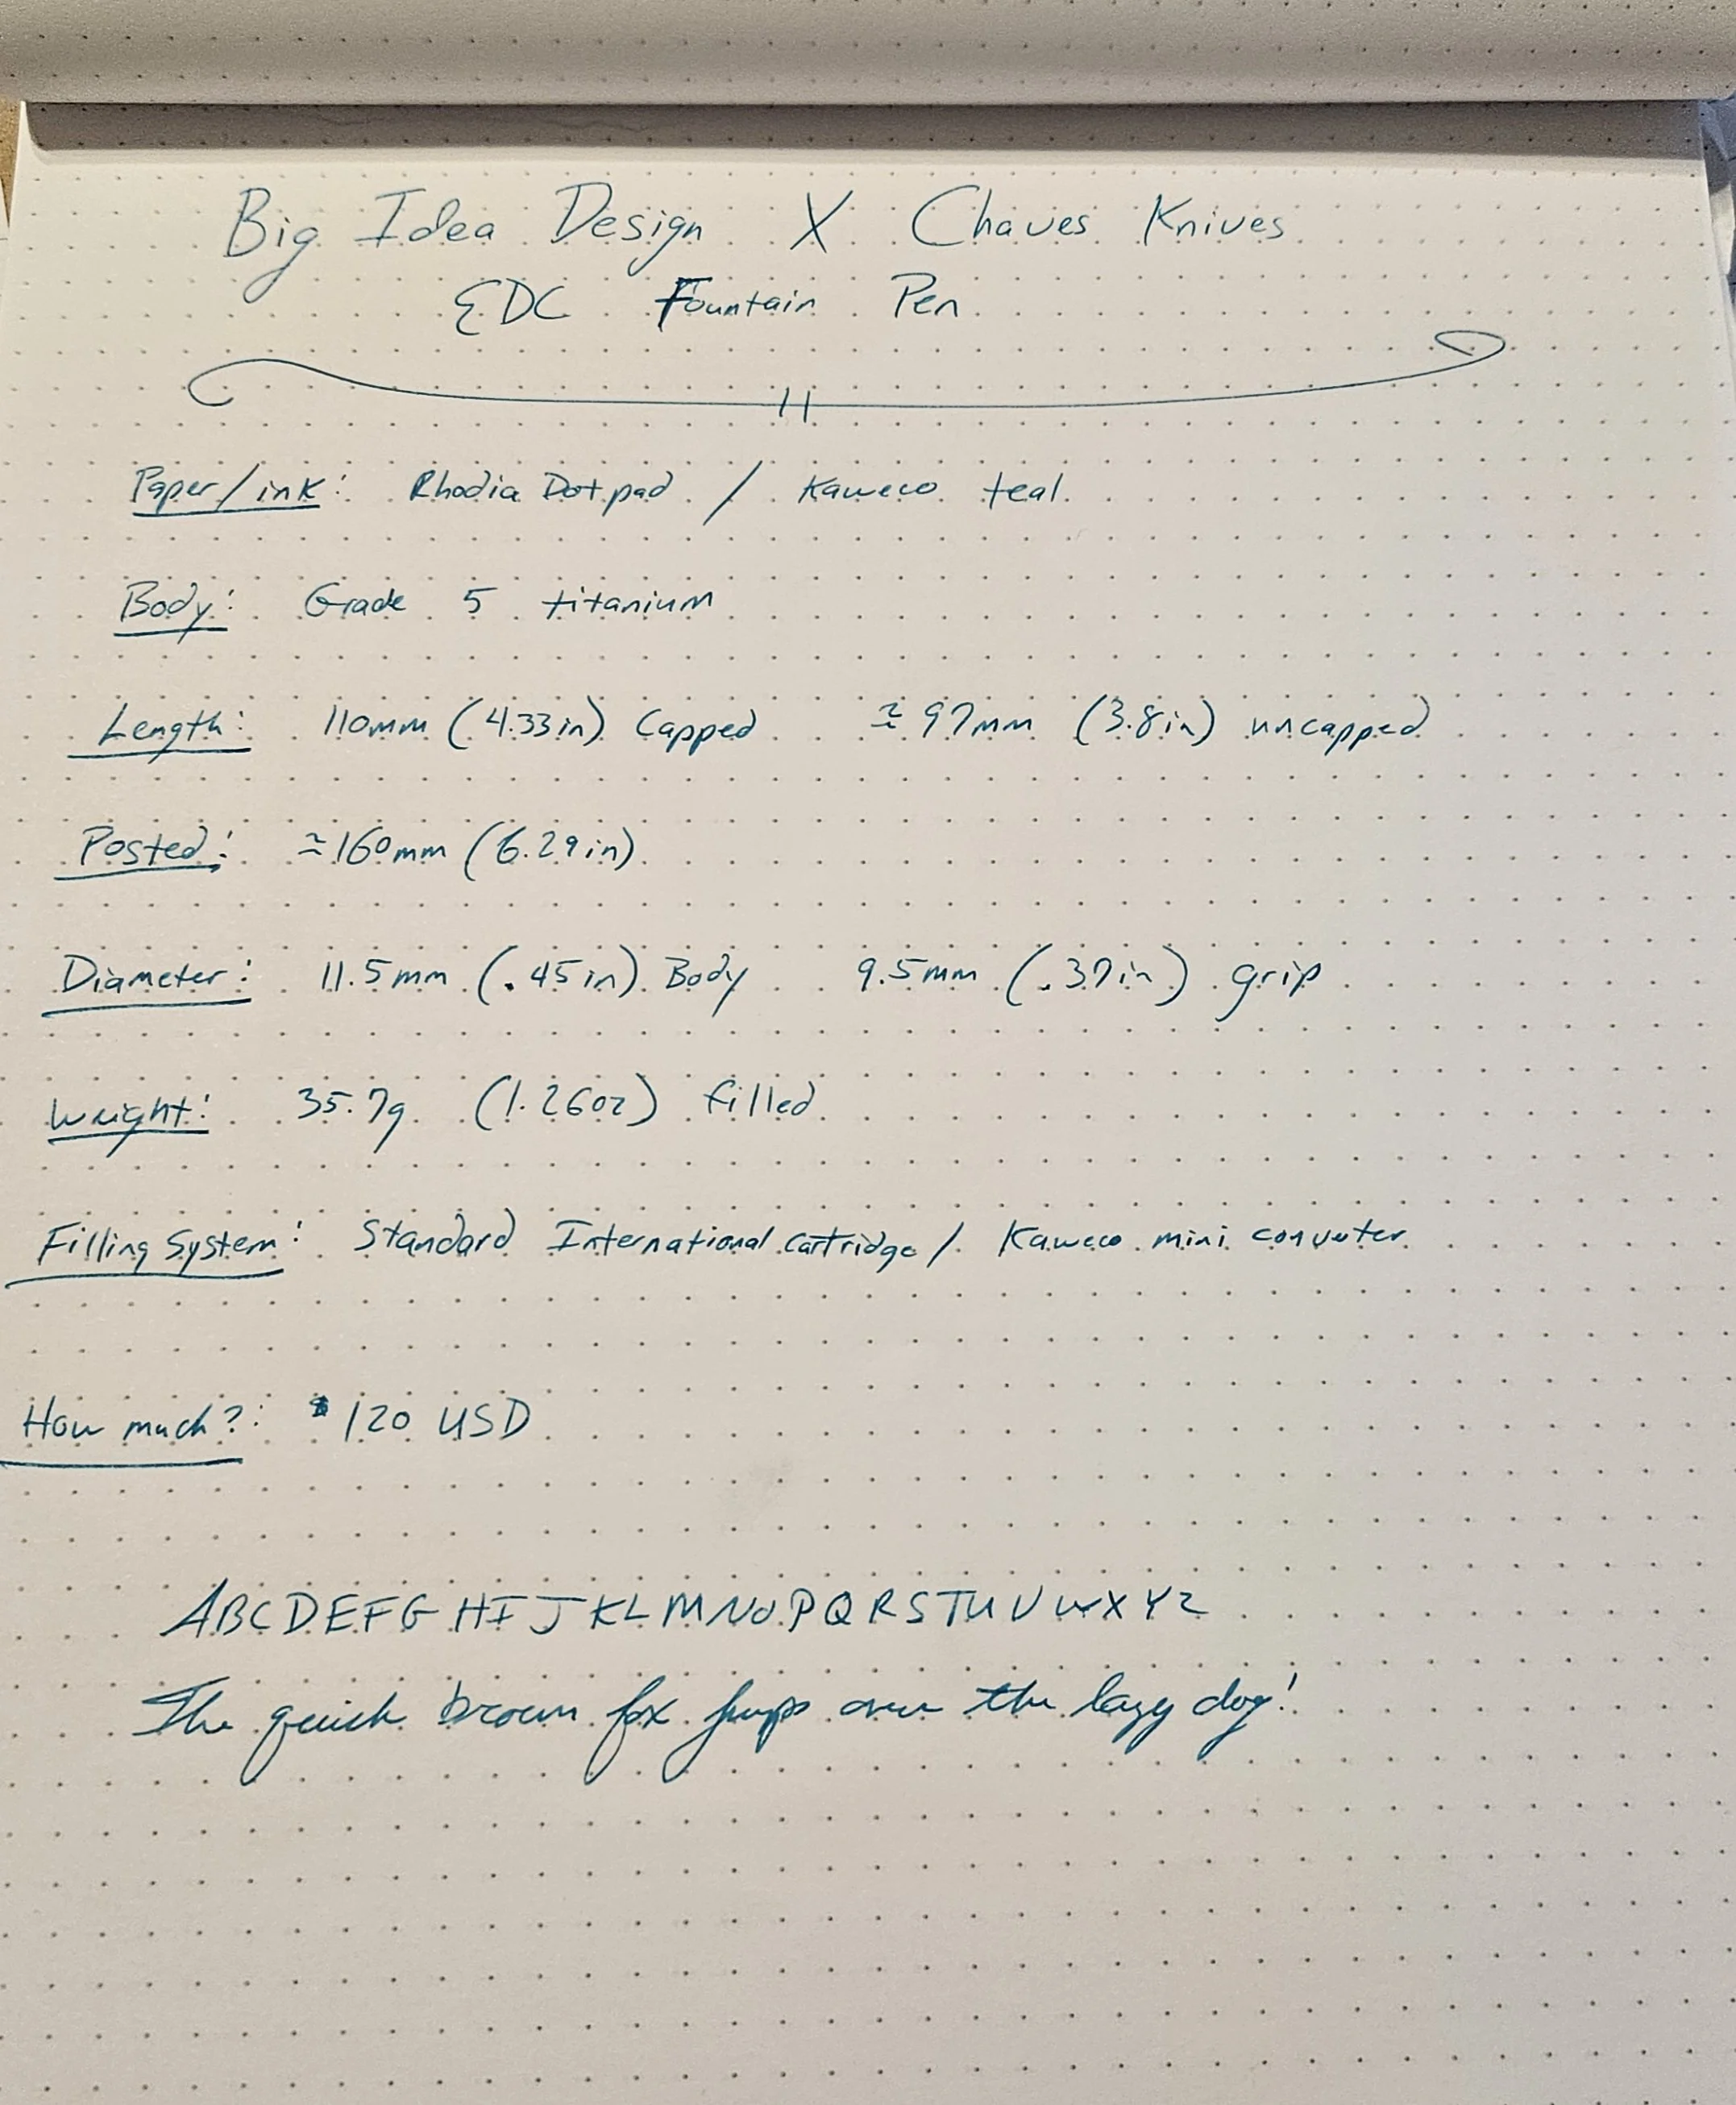 Big Idea Design X Chaves Knives
EDC Fountain Pen
Paper/ink: Rhodia Dotpad / Kaweco teal
Body: Grade 5 titanium
Length: 110mm (4.33in) Capped ≈ 97mm (3.8in) uncapped
Posted: ≈160mm (6.29in)
Diameter: 11.5mm (.45in) Body 9.5mm (.37in) grip
Weight: 35.7g (1.26oz) filled
Filling System: Standard International Cartridge / Kaweco mini converter
How much?: $120 USD
ABCDEFGHIJKLMNOPQRSTUVWXYZ
The quick brown fox jumps over the lazy dog!